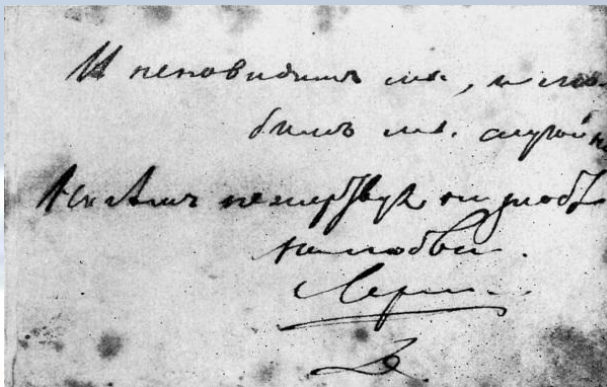 И неновидимъ мы, и лю-
бимъ мы. случайн
нежертвуя ни злобѣ
ни любви.
Лерм.